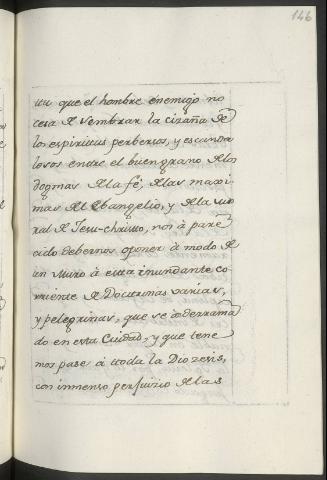 146
que el hombre enemigo no
cesa de sembrar la cizaña de
los espiritus perbersos, y escanda
losos entre el buen grano de los
dogmas de la fé, de las maxi-
mas del Ebangelio, y de la mo
ral de Jesu-christo, nos á pare
cido debernos oponer á modo de
un Muro á esta inundante co
rriente de Doctrinas varias,
y pelegrinas, que se à derrama
do en esta Ciudad, y que tene
mos pase á toda la Diozesis,
con inmenso perjuizio de las